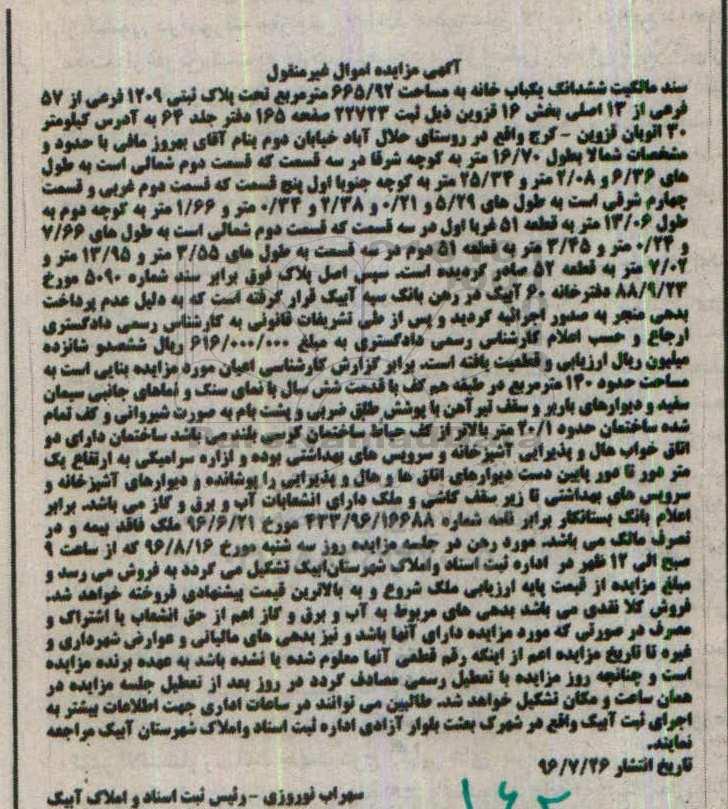 آگهی مزایده اموال غیرمنقول
سند مالکیت ششدانگ یکباب خانه به مساحت ۶۶۵/۹۲ مترمربع تحت پلاک ثبتی ۱۲۰۹ فرعی از ۵۷
فرعی از ۱۳ اصلی بخش ۱۶ قزوین ذیل ثبت ۲۲۷۲۳ صفحه ۱۶۵ دفتر جلد ۶۴ به آدرس کیلومتر
۳۰ اتوبان قزوین - کرج واقع در روستای حلال آباد خیابان دوم بنام آقای بهروز مافی با حدود و
مشخصات شمالا بطول ۱۶/۷۰ متر به کوچه شرقا در سه قسمت که قسمت دوم شمالی است به طول
های ۶/۳۶ و ۲/۰۸ متر و ۲۵/۳۴ متر به کوچه جنوبا اول پنج قسمت که قسمت دوم غربی و قسمت
چهارم شرقی است به طول های ۵/۲۹ و ۰/۲۱ و ۲/۳۸ و ۰/۳۴ متر و ۱/۶۶ متر به کوچه دوم به
طول ۱۳/۰۶ متر به قطعه ۵۱ غربا اول در سه قسمت که قسمت دوم شمالی است به طول های ۷/۶۶
و ۰/۲۴ متر و ۳/۴۵ متر به قطعه ۵۱ دوم در سه قسمت به طول های ۳/۵۵ متر و ۱۳/۹۵ متر و
۷/۰۲ متر به قطعه ۵۲ صادر گردیده است. سپس اصل پلاک فوق برابر سند شماره ۵۰۹۰ مورخ
۸۸/۹/۲۳ دفترخانه ۶۰ آبیک در رهن بانک سپه آبیک قرار گرفته است که به دلیل عدم پرداخت
بدهی منجر به صدور اجرائیه گردید و پس از طی تشریفات قانونی به کارشناس رسمی دادگستری
ارجاع و حسب اعلام کارشناس رسمی دادگستری به مبلغ ۶۱۶/۰۰۰/۰۰۰ ریال ششصدو شانزده
میلیون ریال ارزیابی و قطعیت یافته است. برابر گزارش کارشناسی اعیان مورد مزایده بنایی است به
مساحت حدود ۱۳۰ مترمربع در طبقه هم کف با قدمت شش سال با نمای سنگ و نماهای جانبی سیمان
سفید و دیوارهای باربر و سقف تیرآهن با پوشش طاق ضربی و پشت بام به صورت شیروانی و کف تمام
شده ساختمان حدود ۲۰/۱ متر بالاتر از کف حیاط ساختمان کرسی بلند می باشد ساختمان دارای دو
اتاق خواب هال و پذیرایی آشپزخانه و سرویس های بهداشتی بوده و ازاره سرامیکی به ارتفاع یک
متر دور تا دور پایین دست دیوارهای اتاق ها و هال و پذیرایی را پوشانده و دیوارهای آشپزخانه و
سرویس های بهداشتی تا زیر سقف کاشی و ملک دارای انشعابات آب و برق و گاز می باشد. برابر
اعلام بانک بستانکار برابر نامه شماره ۴۳۳/۹۶/۱۶۶۸۸ مورخ ۹۶/۶/۲۱ ملک فاقد بیمه و در
تصرف مالک می باشد. مورد رهن در جلسه مزایده روز سه شنبه مورخ ۹۶/۸/۱۶ که از ساعت ۹
صبح الی ۱۲ ظهر در اداره ثبت اسناد واملاک شهرستان آبیک تشکیل می گردد به فروش می رسد و
مبلغ مزایده از قیمت پایه ارزیابی ملک شروع و به بالاترین قیمت پیشنهادی فروخته خواهد شد.
فروش کلا نقدی می باشد بدهی های مربوط به آب و برق و گاز اعم از حق انشعاب یا اشتراک و
مصرف در صورتی که مورد مزایده دارای آنها باشد و نیز بدهی های مالیاتی و عوارض شهرداری و
غیره تا تاریخ مزایده اعم از اینکه رقم قطعی آنها معلوم شده یا نشده باشد به عهده برنده مزایده
است و چنانچه روز مزایده با تعطیل رسمی مصادف گردد در روز بعد از تعطیل جلسه مزایده در
همان ساعت و مکان تشکیل خواهد شد. طالبین می توانند در ساعات اداری جهت اطلاعات بیشتر به
اجرای ثبت آبیک واقع در شهرک بعثت بلوار آزادی اداره ثبت اسناد واملاک شهرستان آبیک مراجعه
نمایند.
تاریخ انتشار ۹۶/۷/۲۶
سهراب نوروزی - رئیس ثبت اسناد و املاک آبیک